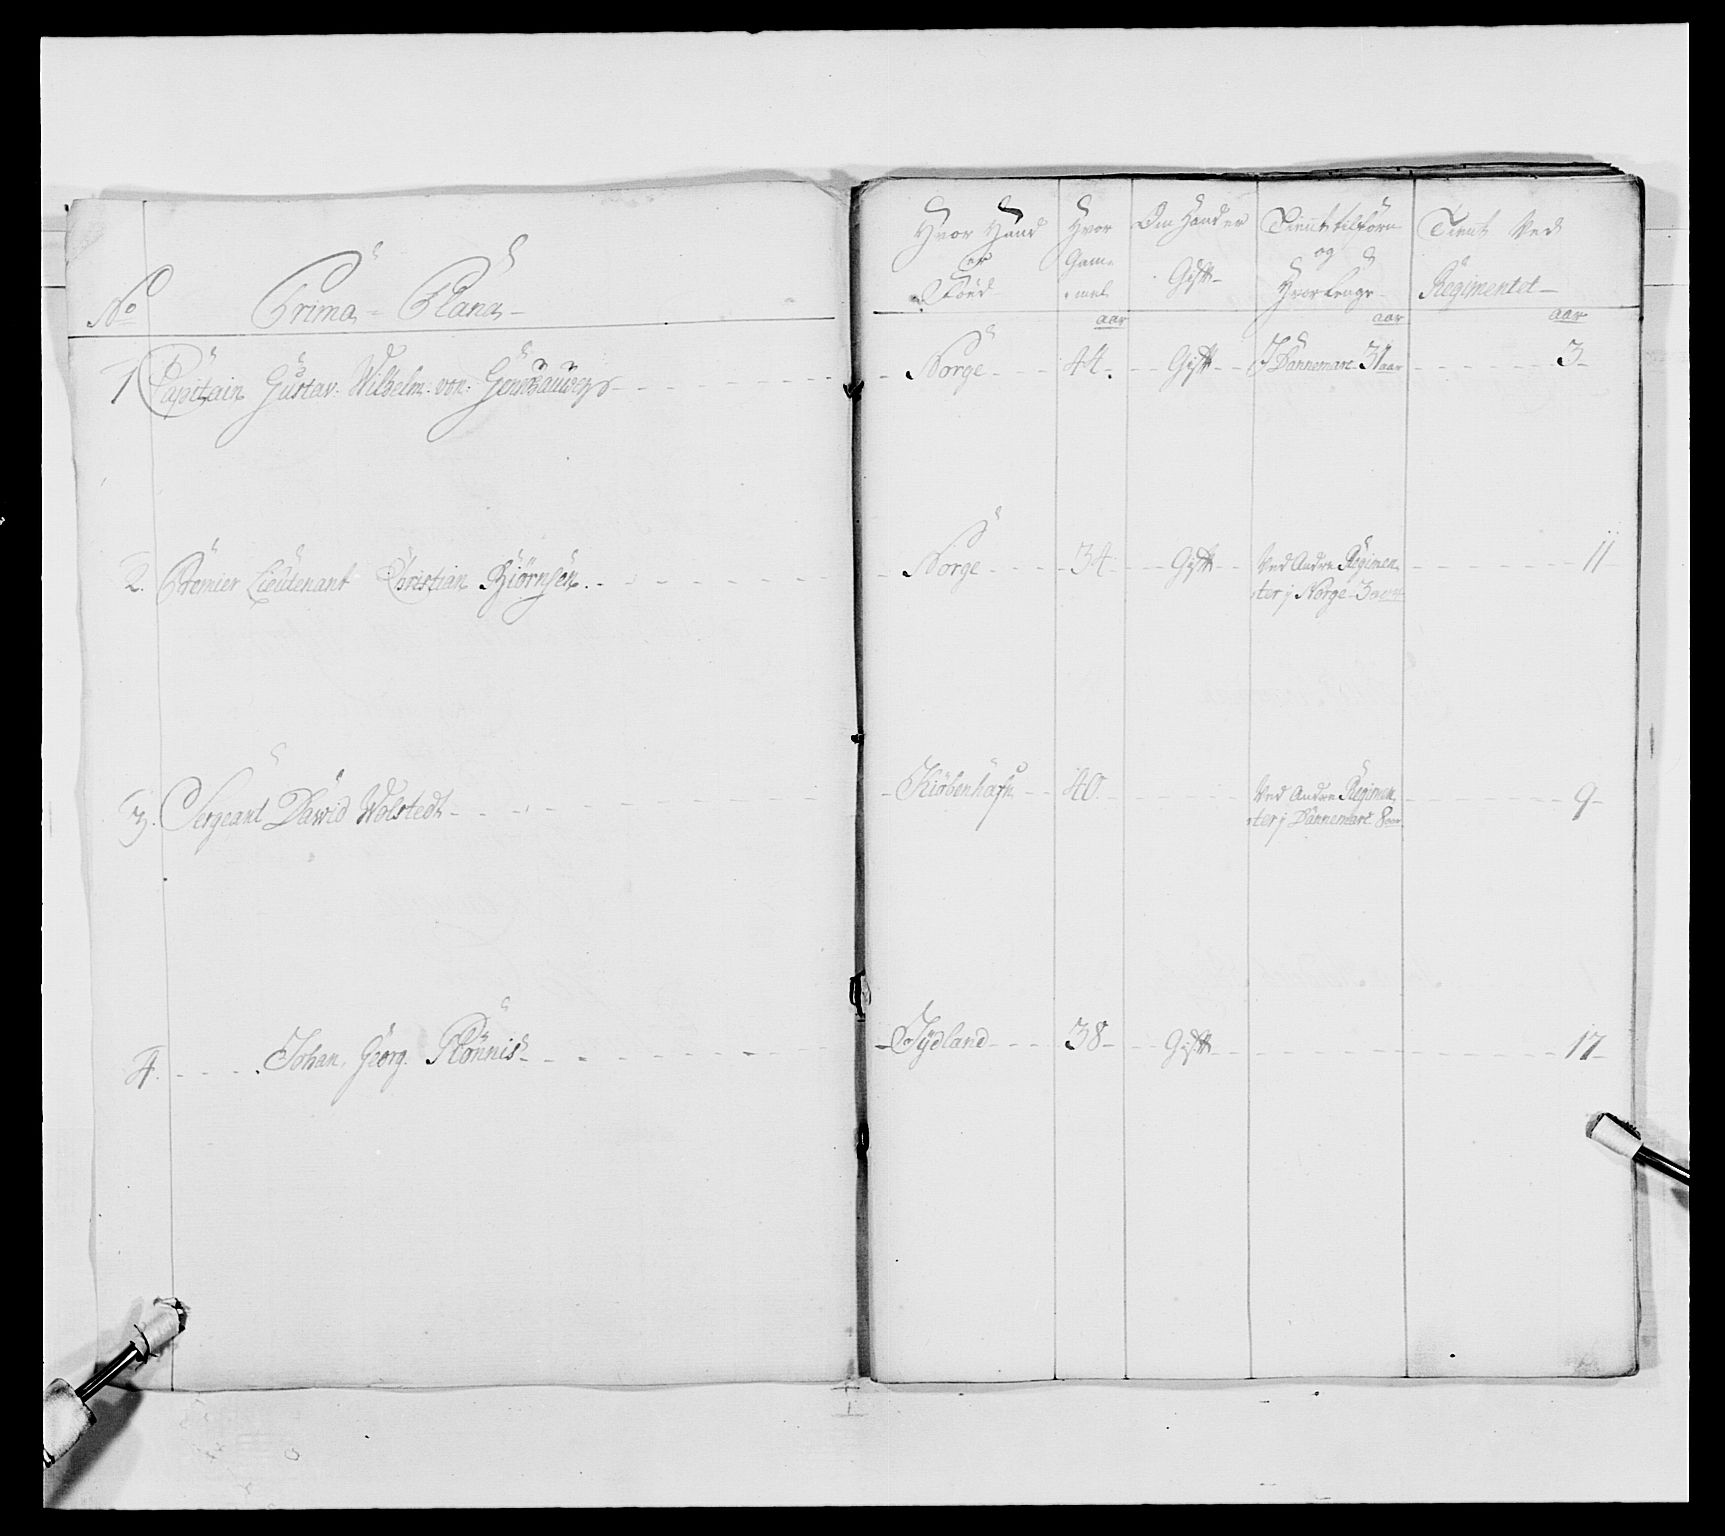 No Prima - Plana -
Hvor Hand er Föed
Hvor Gam= mel
aar
Om Hand er Gift -
Tient tilforn og Hvor Lenge -
aar
Tient Ved Regimentet -
aar
1 Capitain Gustav Wilhelm von
Norge 44. Gift J Dannemarc 31 aar 3
2. Premier Lieutenant Christian Biörnsen.
Norge 34 Gift Ved Andre Regimen
ter j Norge 3 aar 11
3. Sergeant Dawid Wolstedt
Kiöbenhafn 40 Ved Andre Regimen
ter j Dannemarc 8 aar 9
4. Johan Georg Plönnis
Jydland 38 Gift 17